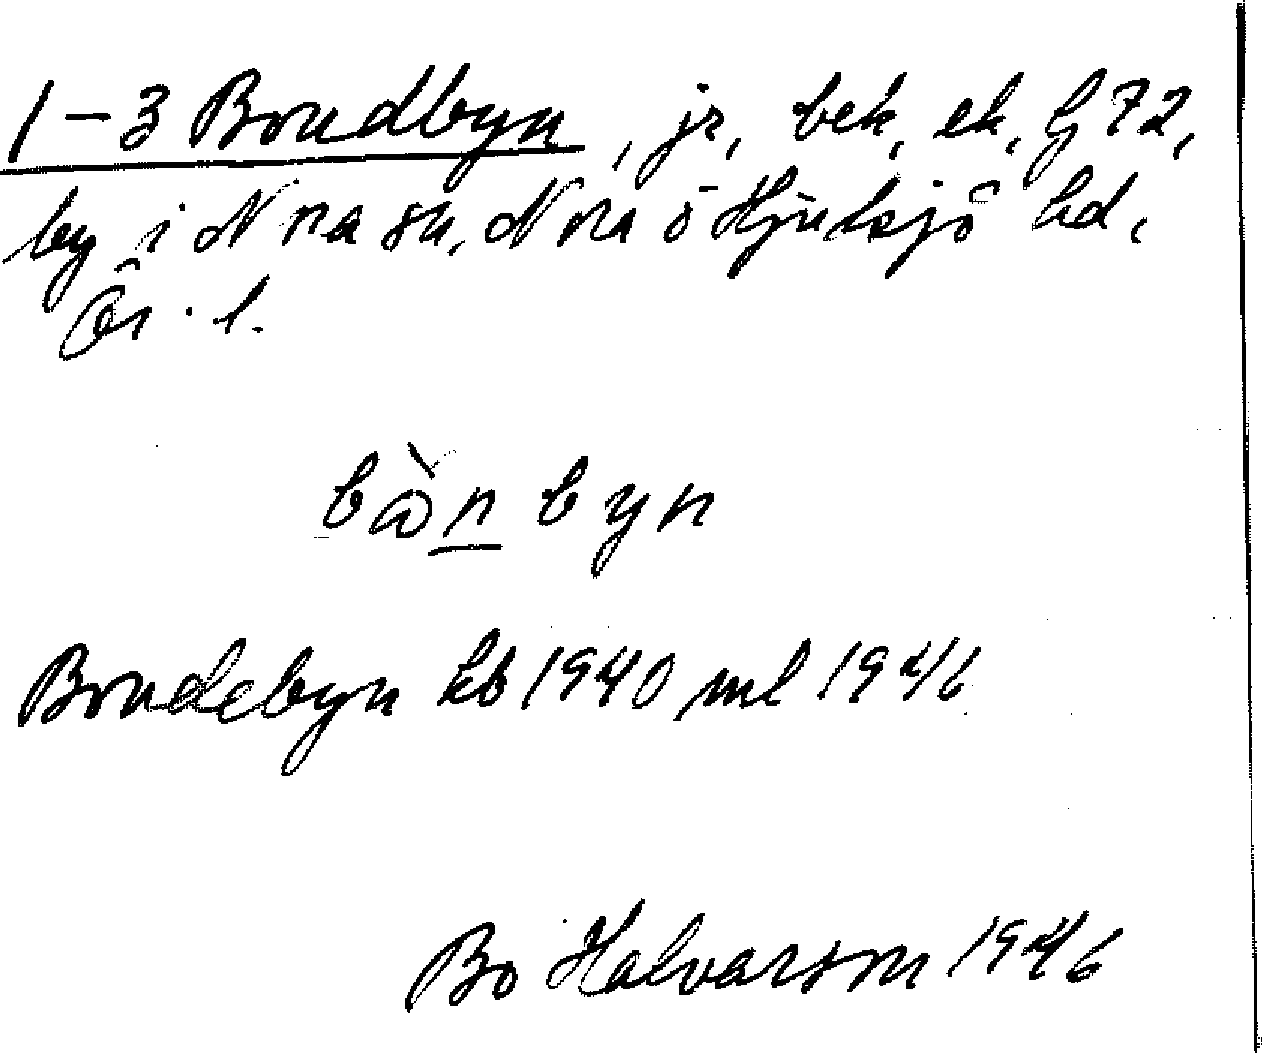 1-3 Bondbyn, jr, bek, ek, G 72,
by i Nora sn, Nora o Hjulsjö hd,
Ör. l.
bànbyn
Bondebyn kb 1940 ml 1946
Bo Halvarson 1946